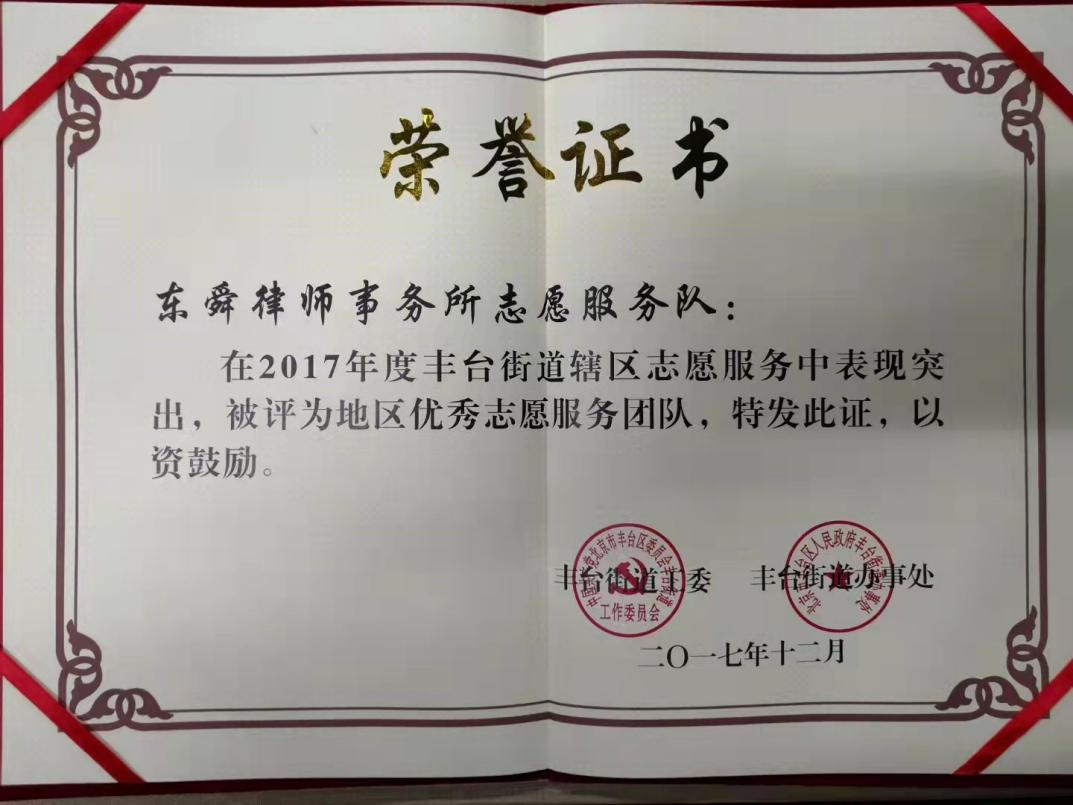 荣誉证书
东舜律师事务所志愿服务队：
在2017年度丰台街道辖区志愿服务中表现突
出，被评为地区优秀志愿服务团队，特发此证，以
资鼓励。
中国共产党北京市丰台区委员会丰台街道
工作委员会
北京市丰台区人民政府丰台街道办事处
丰台街道工委 丰台街道办事处
二〇一七年十二月